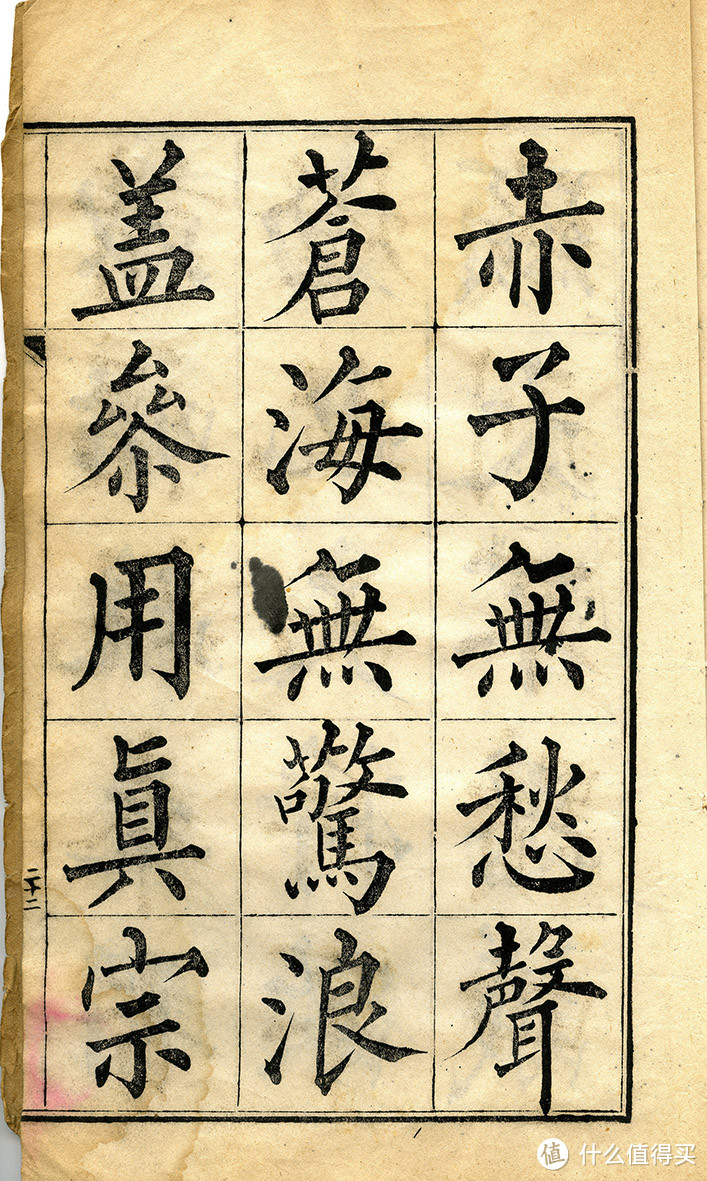 赤子無愁聲
蒼海無驚浪
盖叅用眞宗
二十二
值 什么值得买